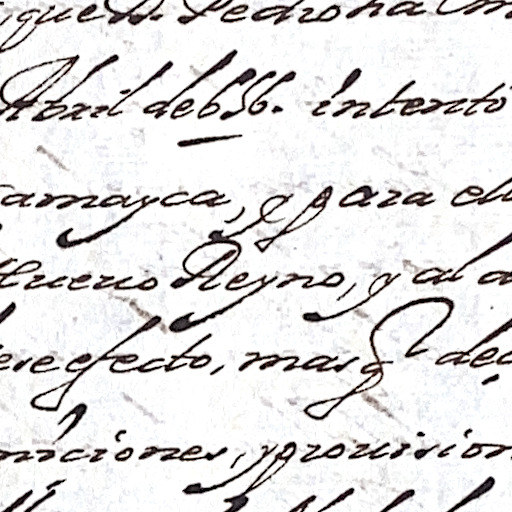 que D. Pedro ha
Abril de 656. intentó
amayca, y para el
Nueuo Reyno, y al
ese efecto, mas q de
niciones, y prouision